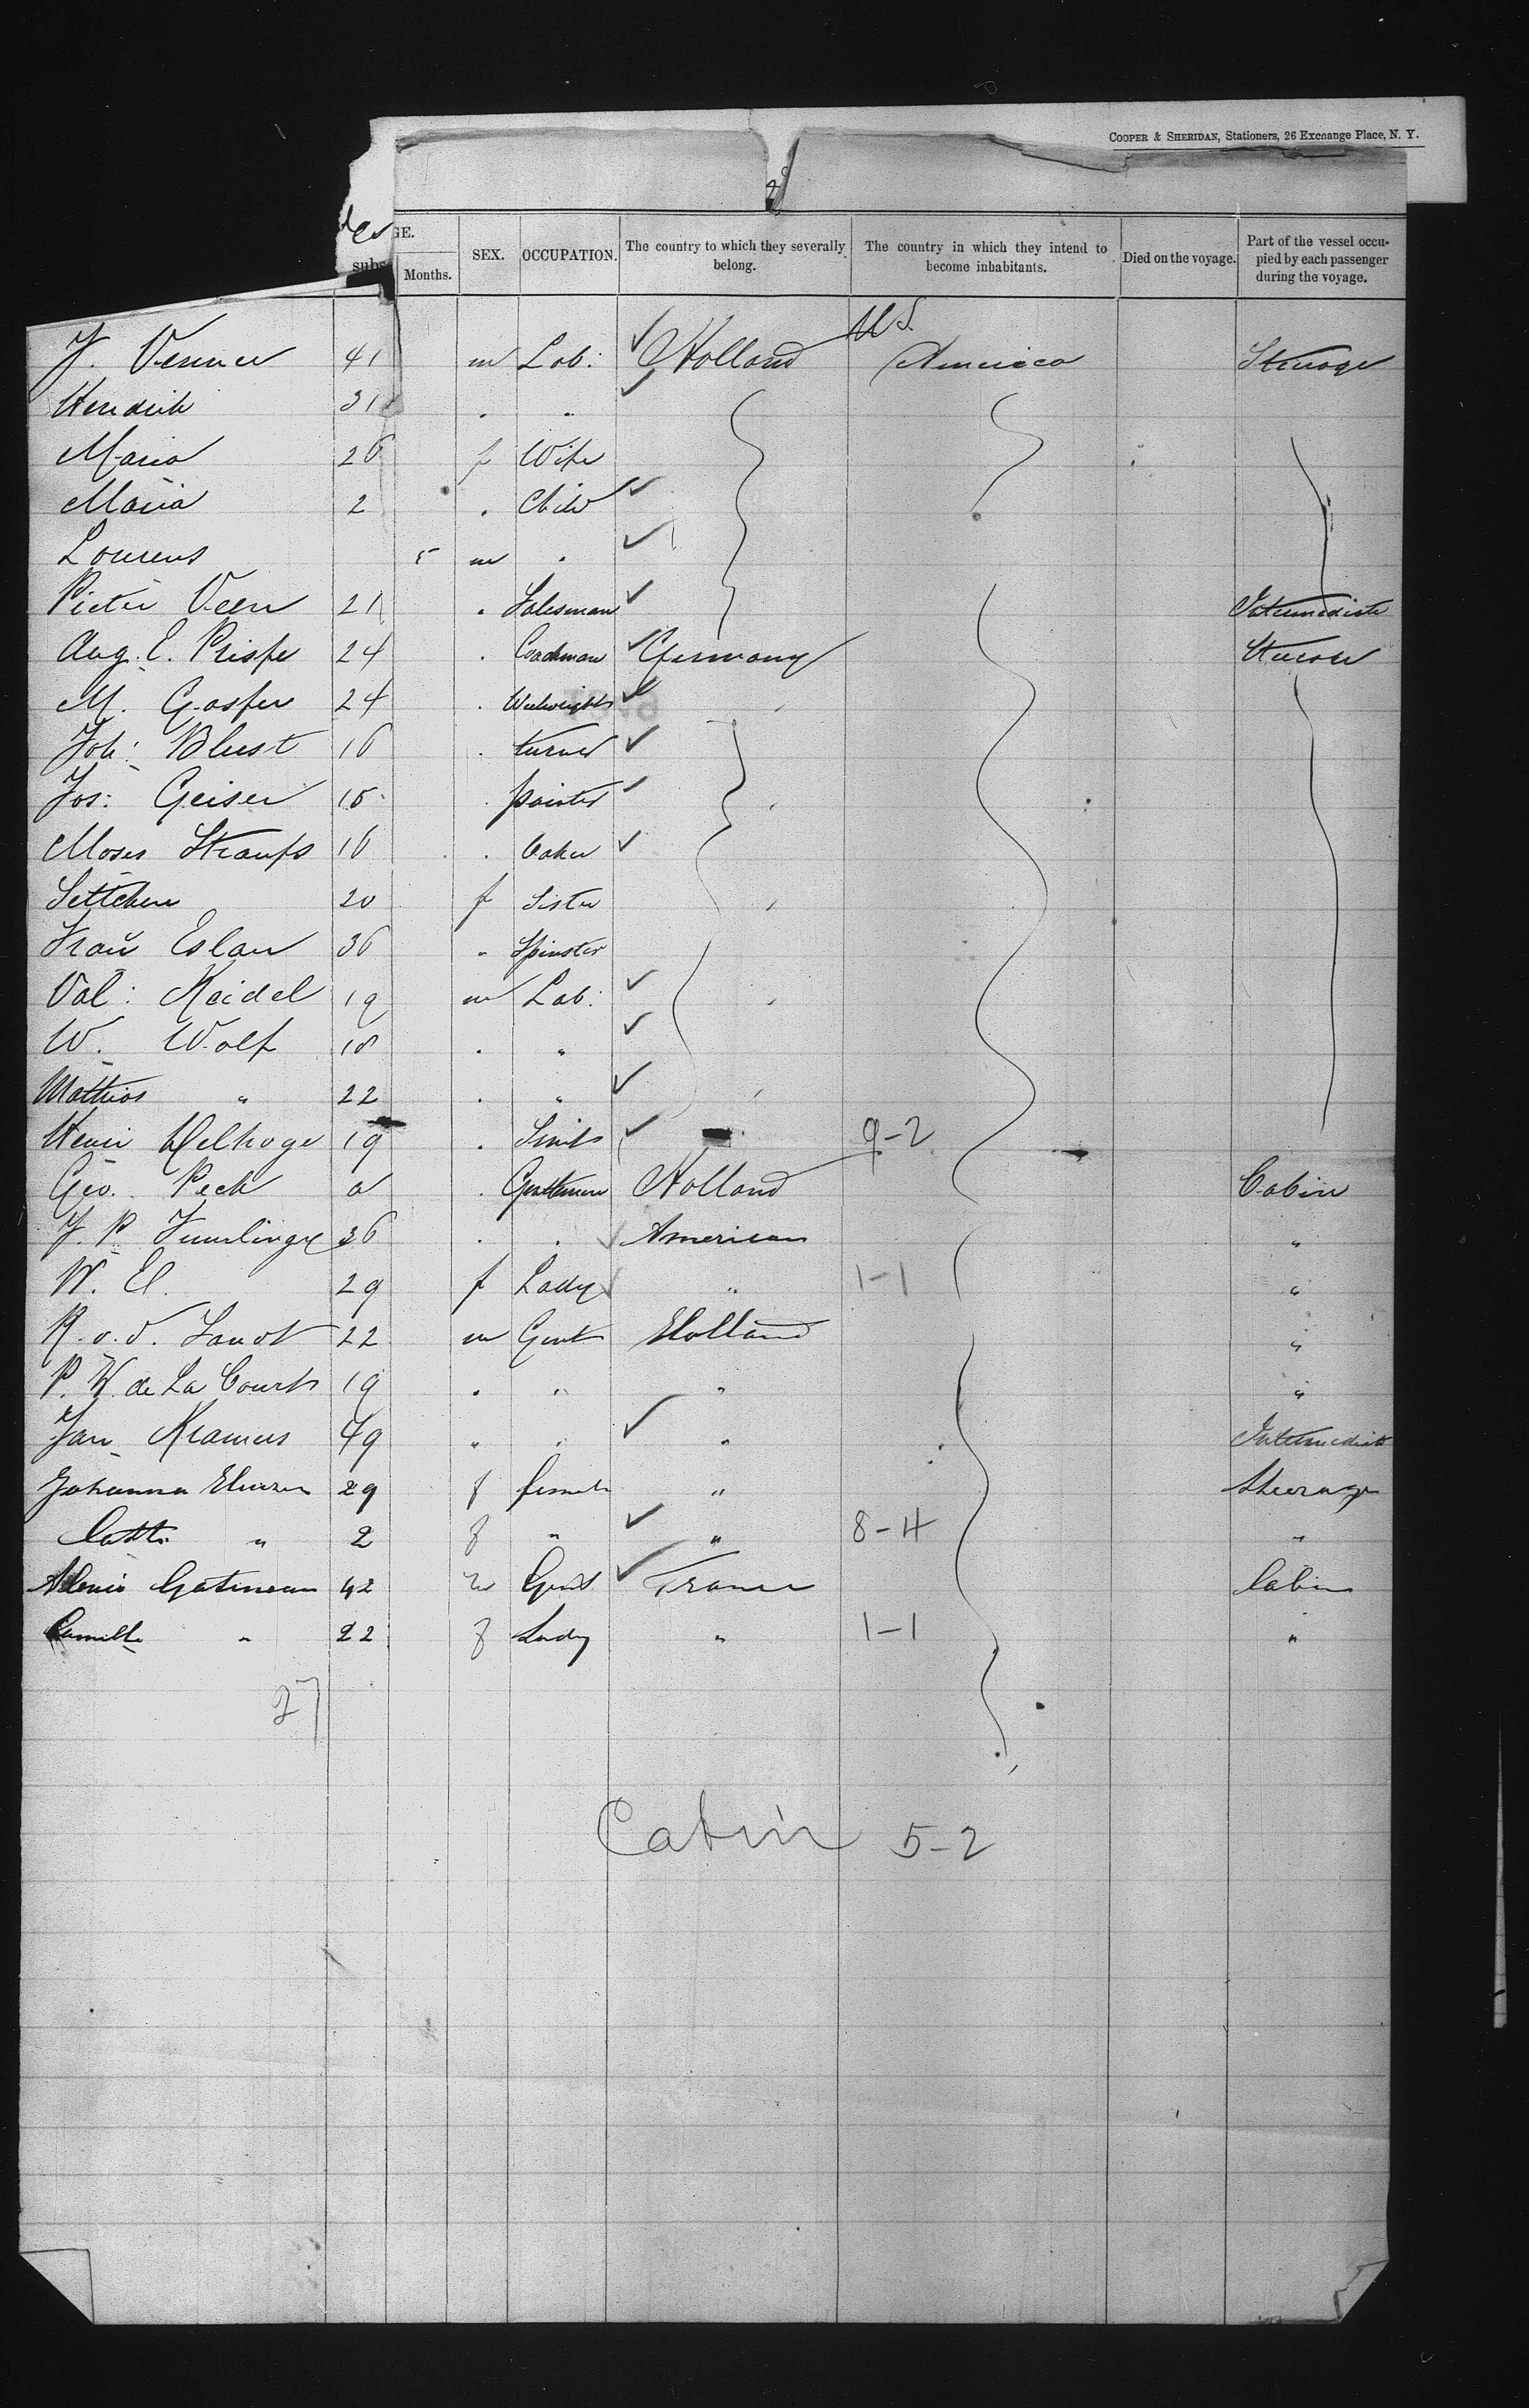 COOPER & SHERIDAN, Stationers, 26 Exchange Place, N. Y.
GE. Months. SEX. OCCUPATION. The country to which they severally belong. The country in which they intend to become inhabitants. Died on the voyage. Part of the vessel occupied by each passenger during the voyage.
subs
U S.
J. Venner 41 m Lab: Holland America Steerage
Hendrik 31 . .
Maria 26 f Wife
Maria 2 . Child
Lourens 5 m .
Pieter Veen 21 . Salesman Intermediate
Aug. E. 24 . Coachman Germany Steerage
M. Gasser 24 . Weelwright
Joh: Blust 16 . turner
Jos: Geiser 15 . painter
Moses Straufs 16 . baker
Settchen 20 f Sister
Frau Eslau 36 " Spinster
Val: Keidel 19 m Lab:
W. Wolf 18 . "
Mathias " 22 . "
Henri 19 . Smith 9-2
Geo. Peck a . Gentleman Holland Cabin
J. P. 36 . . American "
W. E. 29 f Lady " 1-1 "
R. v. d. 22 m Gent Holland "
P. W. de La Court 19 . " " "
Jan Kramers 49 " . " Intermediate
Johanna 29 f female " Steerage
2 f " " 8-4 "
Alexis Gatineau 42 m Gent France Cabin
Camille " 22 f Lady " 1-1 "
27
Cabin 5-2